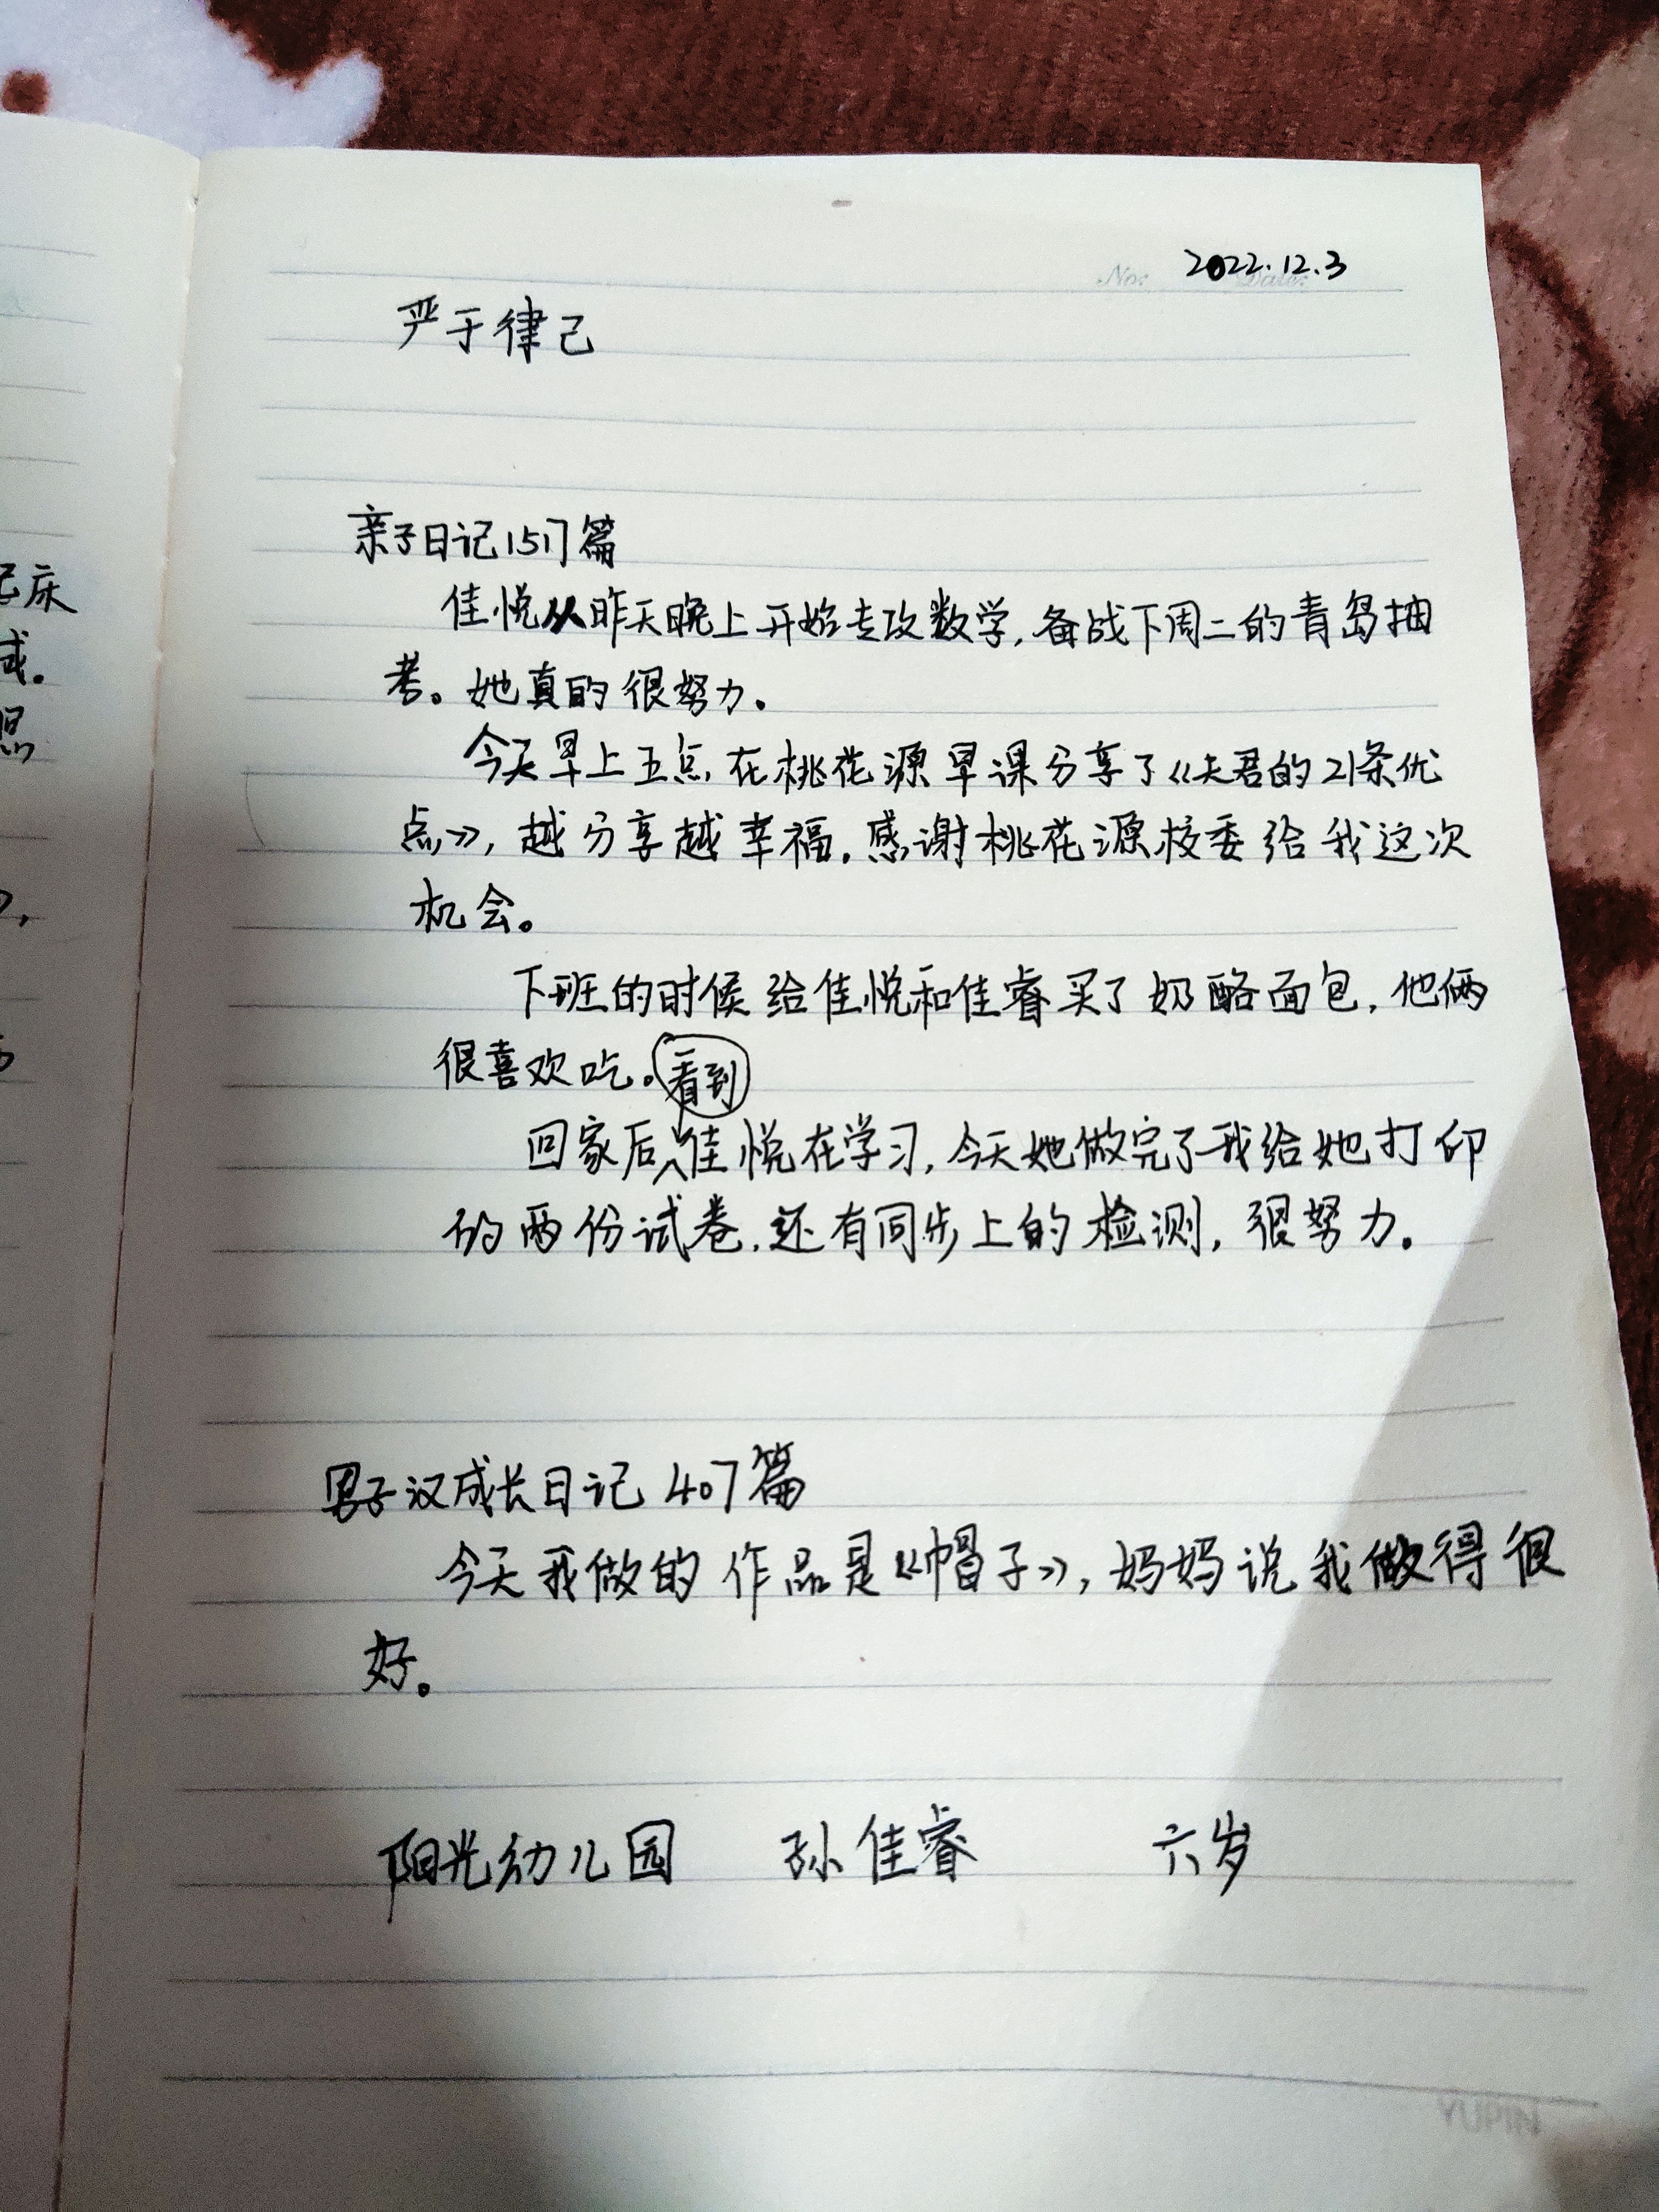 No: Date:
2022.12.3
严于律己
亲子日记1517篇
佳悦从昨天晚上开始专攻数学,备战下周二的青岛抽
考。她真的很努力。
今天早上五点,在桃花源早课分享了《夫君的21条优
点》,越分享越幸福。感谢桃花源校委给我这次
机会。
下班的时候给佳悦和佳睿买了奶酪面包,他俩
很喜欢吃。
看到
回家后佳悦在学习,今天她做完了我给她打印
的两份试卷,还有同步上的检测,很努力。
男子汉成长日记407篇
今天我做的作品是《帽子》,妈妈说我做得很
好。
阳光幼儿园 孙佳睿 六岁
YUPIN